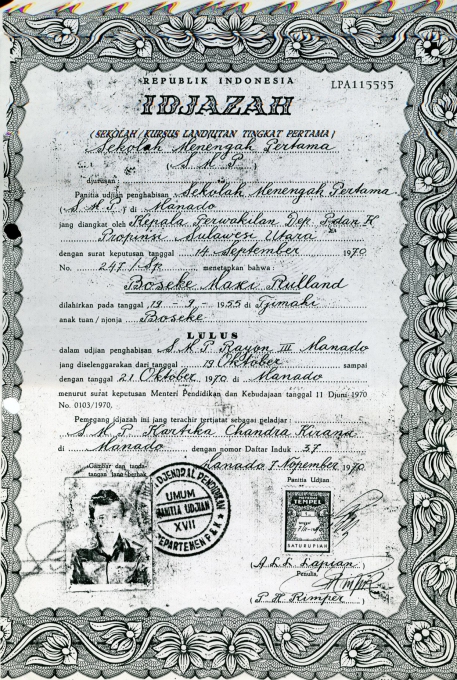 REPUBLIK INDONESIA
LPA115535
IDJAZAH
(SEKOLAH / KURSUS LANDJUTAN TINGKAT PERTAMA)
Sekolah Menengah Pertama
(S M P)
djurusan :
Panitia udjian penghabisan Sekolah Menengah Pertama
(S M P) di Manado
jang diangkat oleh Kepala Perwakilan Dep. P dan K
Propinsi Sulawesi Utara
dengan surat keputusan tanggal 14 September 1970
No. 247 / Sp menetapkan bahwa :
Boseke Maxi Rulland
dilahirkan pada tanggal 19 - 9 - 1955 di Tjimahi
anak tuan / njonja Boseke
LULUS
dalam udjian penghabisan S M P Rayon III Manado
jang diselenggarakan dari tanggal 19 Oktober sampai
dengan tanggal 21 Oktober 1970 di Manado
menurut surat keputusan Menteri Pendidikan dan Kebudajaan tanggal 11 Djuni 1970
No. 0103/1970.
Pemegang idjazah ini jang terachir tertjatat sebagai peladjar :
S M P Kartika Chandra Kirana
di Manado dengan nomor Daftar Induk 57
Manado 7 Nopember 1970
Gambar dan tanda-
tangan jang berhak
Panitia Udjian
DJENDRAL PENDIDIKAN
UMUM
PANITIA UDJIAN
XVII
DEPARTEMEN P & K
TEMPEL
SATU RUPIAH
(A. L. L. Lapian)
Penulis,
(P. H. Rimper)